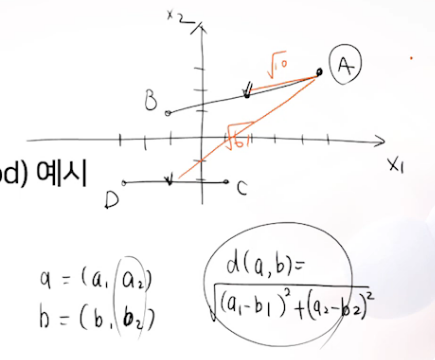 x2
√10
A
B
√61
x1
od) 예시
D
C
a = (a1, a2)
b = (b1, b2)
d(a,b)=
√(a1-b1)²+(a2-b2)²